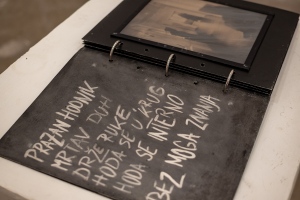 PRAZAN HODNIK
MRTAV DUH
DRŽE RUKE
HODA SE U KRUG
HODA SE INTERNO
BEZ MOGA ZNANJA